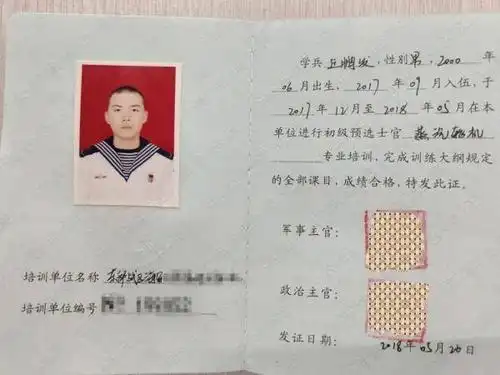 培训单位名称
培训单位编号
学兵 丘鹏发，性别男，2000 年
06月出生，2017 年 09月入伍，于
2017 年 12月至 2018 年 05月在本
单位进行初级预选士官 蒸汽轮机
专业培训，完成训练大纲规定
的全部课目，成绩合格，特发此证。
军事主官：
政治主官：
发证日期： 2018年 05月 20日